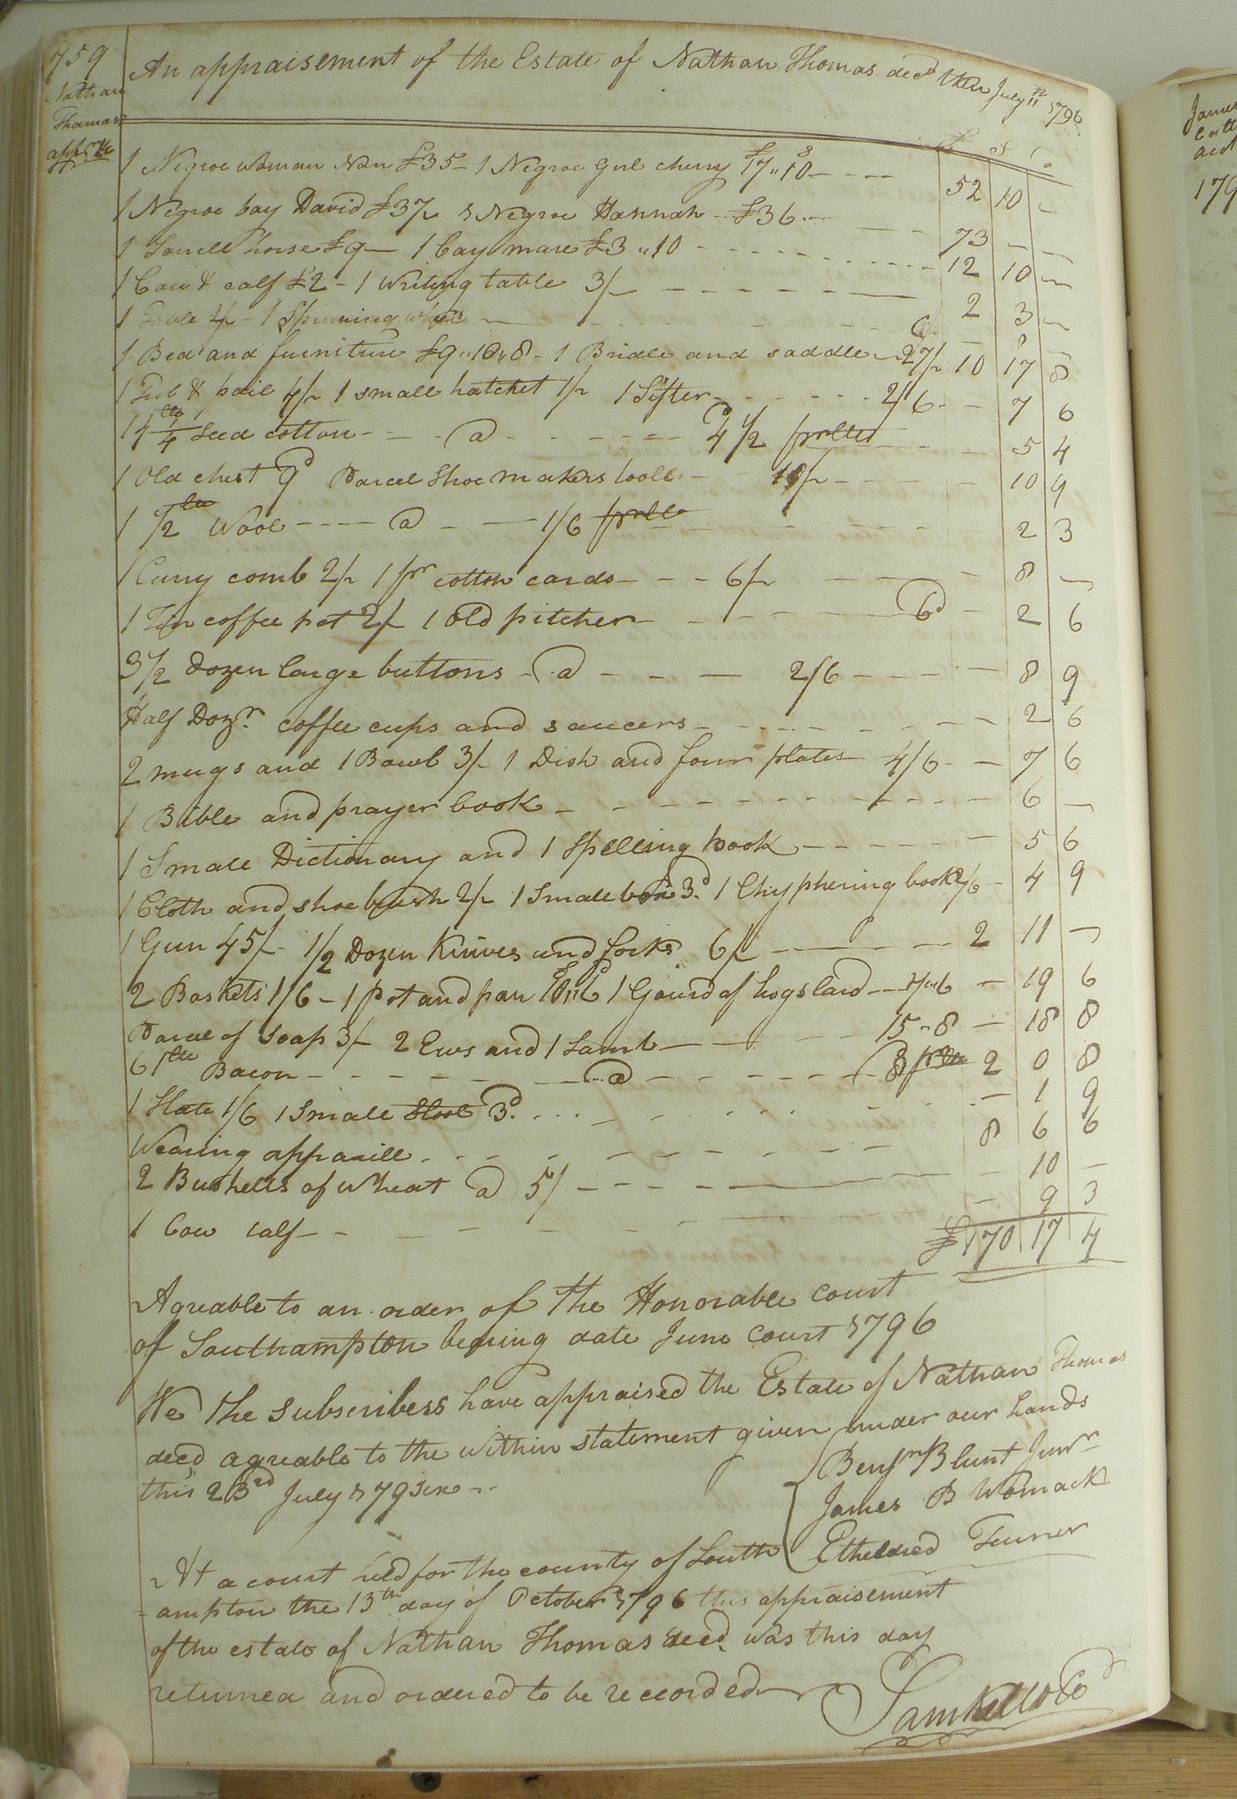 759
Nathan
Thomas
An appraisement of the Estate of Nathan Thomas decd July 1796
£ s
1 Negroe woman Nan £35 - 1 Negroe Girl cherry £17 " 10 s - - - 52 10 -
1 Negroe boy David £37/ 1 Negroe Hannah - £36 - - - 73 - -
1 Sorrell horse £9 - 1 bay mare £3 " 10 - - - 12 10 -
1 Cow & calf £2 - 1 Writing table 3/ - - - 2 3 -
1 Table 2/ - 1 Spinning wheel - - - 6/ - 8 -
1 Bed and furniture £9 " 10 " 8 - 1 Bridle and saddle - 27/ 10 17 8
1 Tub & pail 4/ 1 small hatchet 1/ 1 Sifter - - - 2/6 - 7 6
14 1/4 lb Seed cotton - - - @ - - - 4 1/2 d pr lb - - 5 4
1 Old chest 9d Parcel Shoe makers tools - 10/ - - - 10 9
1 1/2 lb Wool - - - @ - - 1/6 pr lb - - - 2 3
1 Curry comb 2/ 1 pr cotton cards - - - 6/ - - - 8 -
1 Tin coffee pot 2/ 1 old pitcher - - - 6d - 2 6
3 1/2 Dozen large buttons - @ - - - 2/6 - - - 8 9
Half Dozn. coffee cups and saucers - - - 2 6
2 mugs and 1 Bowl 3/ 1 Dish and four plates 4/6 - - 7 6
1 Bible and prayer book - - - 6 -
1 Small Dictionary and 1 Spelling book - - - 5 6
1 Cloth and shoe brush 2/ 1 Small box 3d. 1 Chyphering book 2/6 - 4 9
1 Gun 45/ - 1/2 Dozen Knives and forks 6/ - - - 2 11 -
2 Baskets 1/6 - 1 pot and pan 1 Gourd of hogs lard - - 19 6
Parcel of soap 3/ 2 Ews and 1 Lamb - - - 15 " 8 - 18 8
61 lb Bacon - - - @ - - - 8 pr lb 2 0 8
1 Slate 1/6 1 Small Stool 3d. - - - 1 9
Wearing apparill - - - 8 6 6
2 Bushells of wheat @ 5/ - - - 10 -
1 Cow calf - - - 9 3
£170 17 4
Agreable to an order of the Honorable court
of Southampton bearing date June Court 1796
We the Subscribers have appraised the Estate of Nathan Thomas
decd agreable to the within statement given under our hands
this 23rd July 179six - -
Benjn Blunt Junr
James B Womack
Etheldred Turner
At a court held for the county of South
- ampton the 13th day of October 1796 this appraisement
of the estate of Nathan Thomas decd. was this day
returned and ordered to be recorded
Saml Kello Cl
James
179